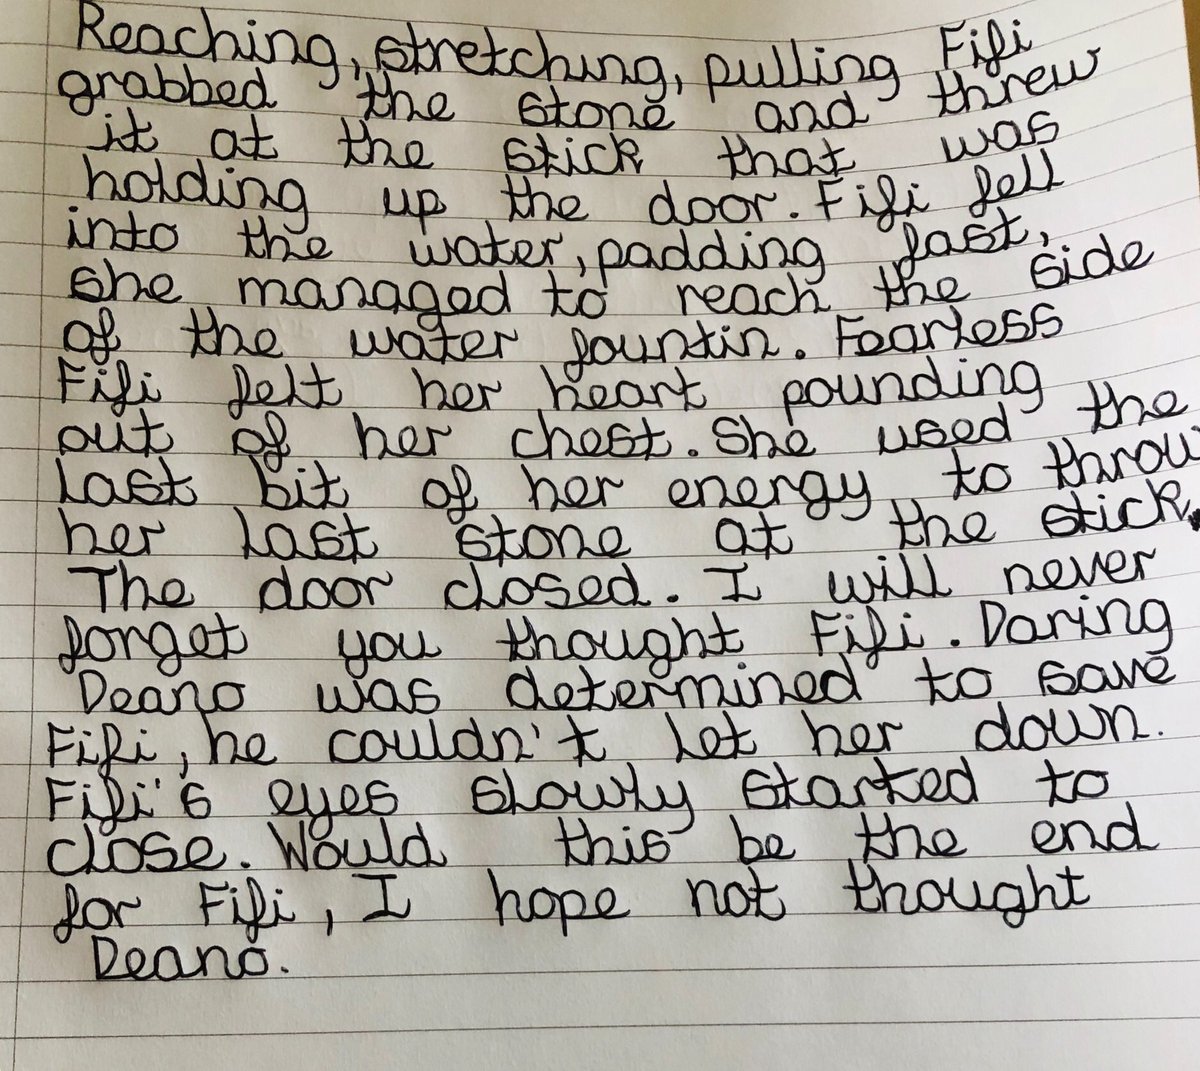 Reaching, stretching, pulling Fifi
grabbed the stone and threw
it at the stick that was
holding up the door. Fifi fell
into the water, padding fast,
she managed to reach the side
of the water fountin. Fearless
Fifi felt her heart pounding
out of her chest. She used the
last bit of her energy to throw
her last stone at the stick.
The door closed. I will never
forget you thought Fifi. Daring
Deano was determined to save
Fifi, he couldn't let her down.
Fifi's eyes slowly started to
close. Would this be the end
for Fifi, I hope not thought
Deano.